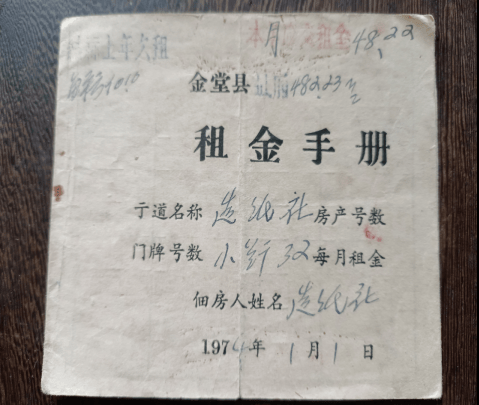 本月 租金 48.22
金堂县 48223
租金手册
亍道名称 造纸社 房产号数
门牌号数 小 32 每月租金
佃房人姓名 造纸社
1974年 1月1日